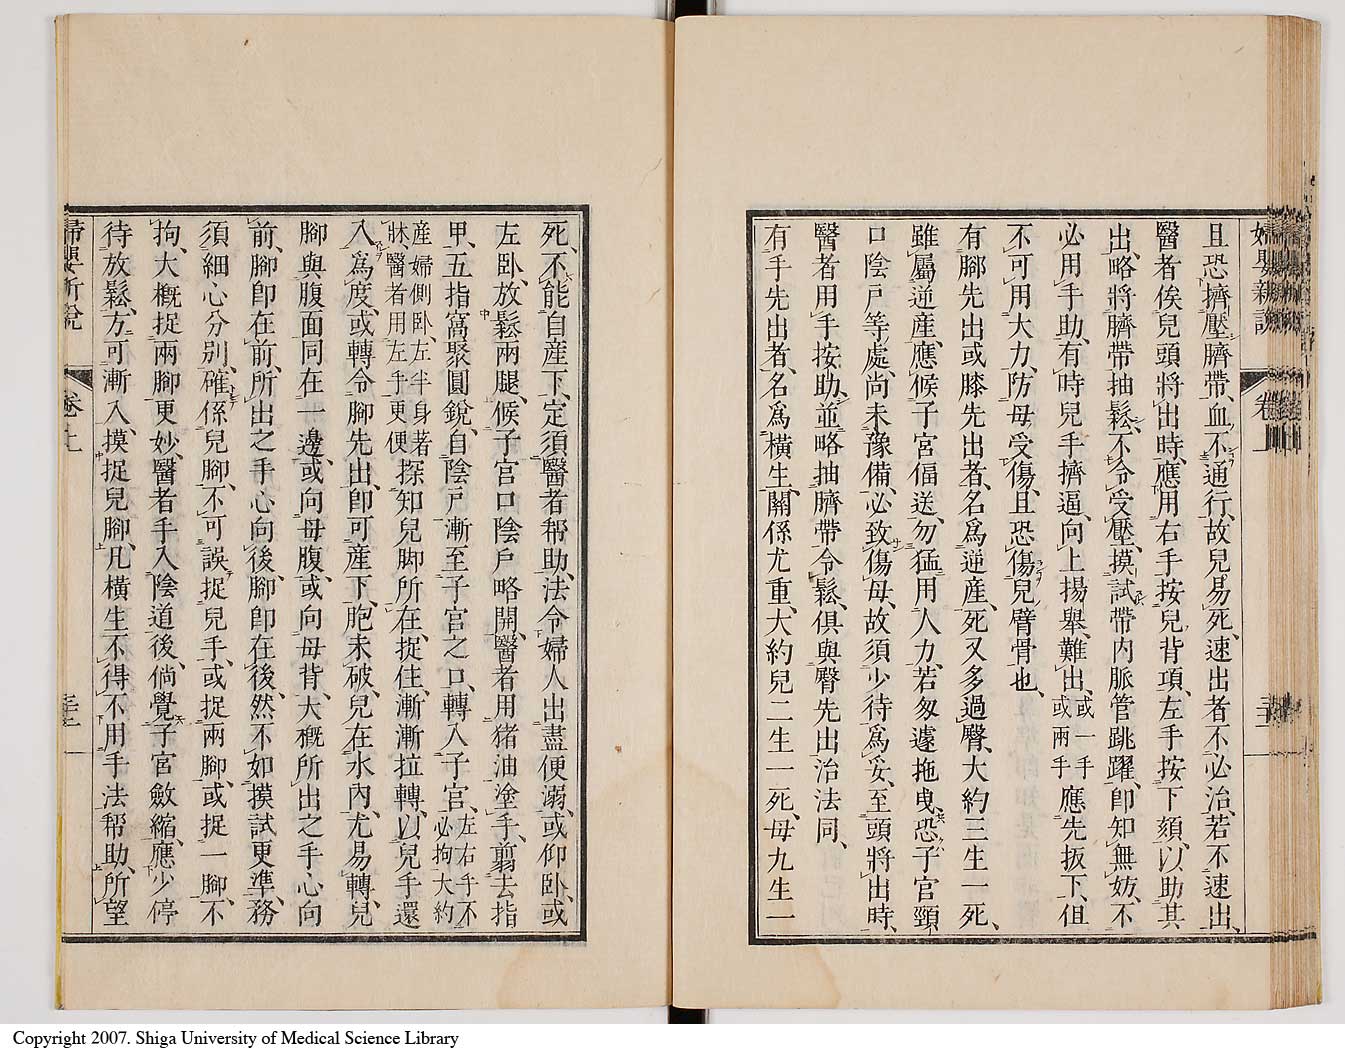 婦嬰新説 卷上
且恐擠壓臍帶、血不通行、故兒易死、速出者不必治、若不速出、
醫者俟兒頭將出時、應用右手按兒背項、左手按下頦、以助其
出、略將臍帶抽鬆、不令受壓、摸試帶内脈管跳躍、卽知無妨、不
必用手助、有時兒手擠逼、向上揚舉、難出、或一手或兩手應先扳下、但
不可用大力、防母受傷、且恐傷兒臂骨也、
有腳先出或膝先出者、名爲逆産、死又多過臀、大約三生一死、
雖屬逆産、應候子宮偪送、勿猛用人力、若匆遽拖曳、恐子宮頸
口陰戸等處、尚未豫備、必致傷母、故須少待爲妥、至頭將出時、
醫者用手按助、並略抽臍帶令鬆、俱與臀先出治法同、
有手先出者、名爲橫生、關係尤重、大約兒二生一死、母九生一
死、不能自産下、定須醫者帮助、法令婦人出盡便溺、或仰卧、或
左卧、放鬆兩腿、候子宮口陰戸略開、醫者用猪油塗手、翦去指
甲、五指窩聚圓銳、自陰戸漸至子宮之口、轉入子宮、左右手不必拘大約
産婦側卧、左半身著牀、醫者用左手更便探知兒脚所在、捉住、漸漸拉轉、以兒手還
入爲度、或轉令腳先出、卽可産下、胞未破、兒在水內、尤易轉、兒
腳與腹面同在一邊、或向母腹、或向母背、大概所出之手心向
前、腳卽在前、所出之手心向後、腳卽在後、然不如摸試更準、務
須細心分別、確係兒腳、不可誤捉兒手、或捉兩腳、或捉一腳、不
拘、大概捉兩腳更妙、醫者手入陰道後、倘覺子宮斂縮、應少停
待放鬆、方可漸入、摸捉兒腳、凡橫生不得不用手法帮助、所望
婦嬰新説 卷上
Copyright 2007. Shiga University of Medical Science Library